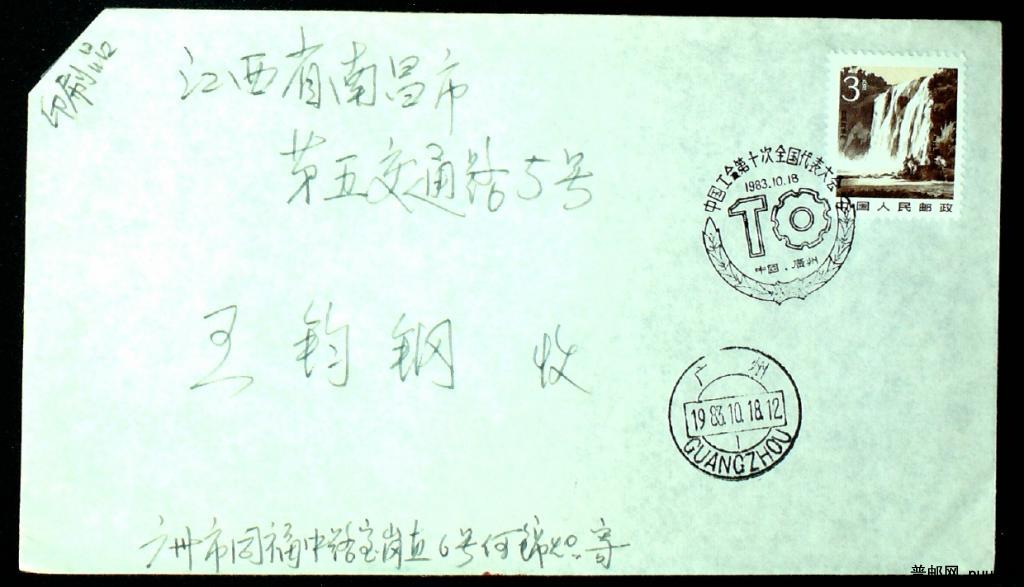 印刷品
江西省南昌市
第五交通路5号
王钧钢 收
3
中国人民邮政
中国工会第十次全国代表大会
1983.10.18
中国·廣州
广州
1983.10.18.12
1
GUANGZHOU
广州市同福中路宝岗直6号何锦 寄
普邮网